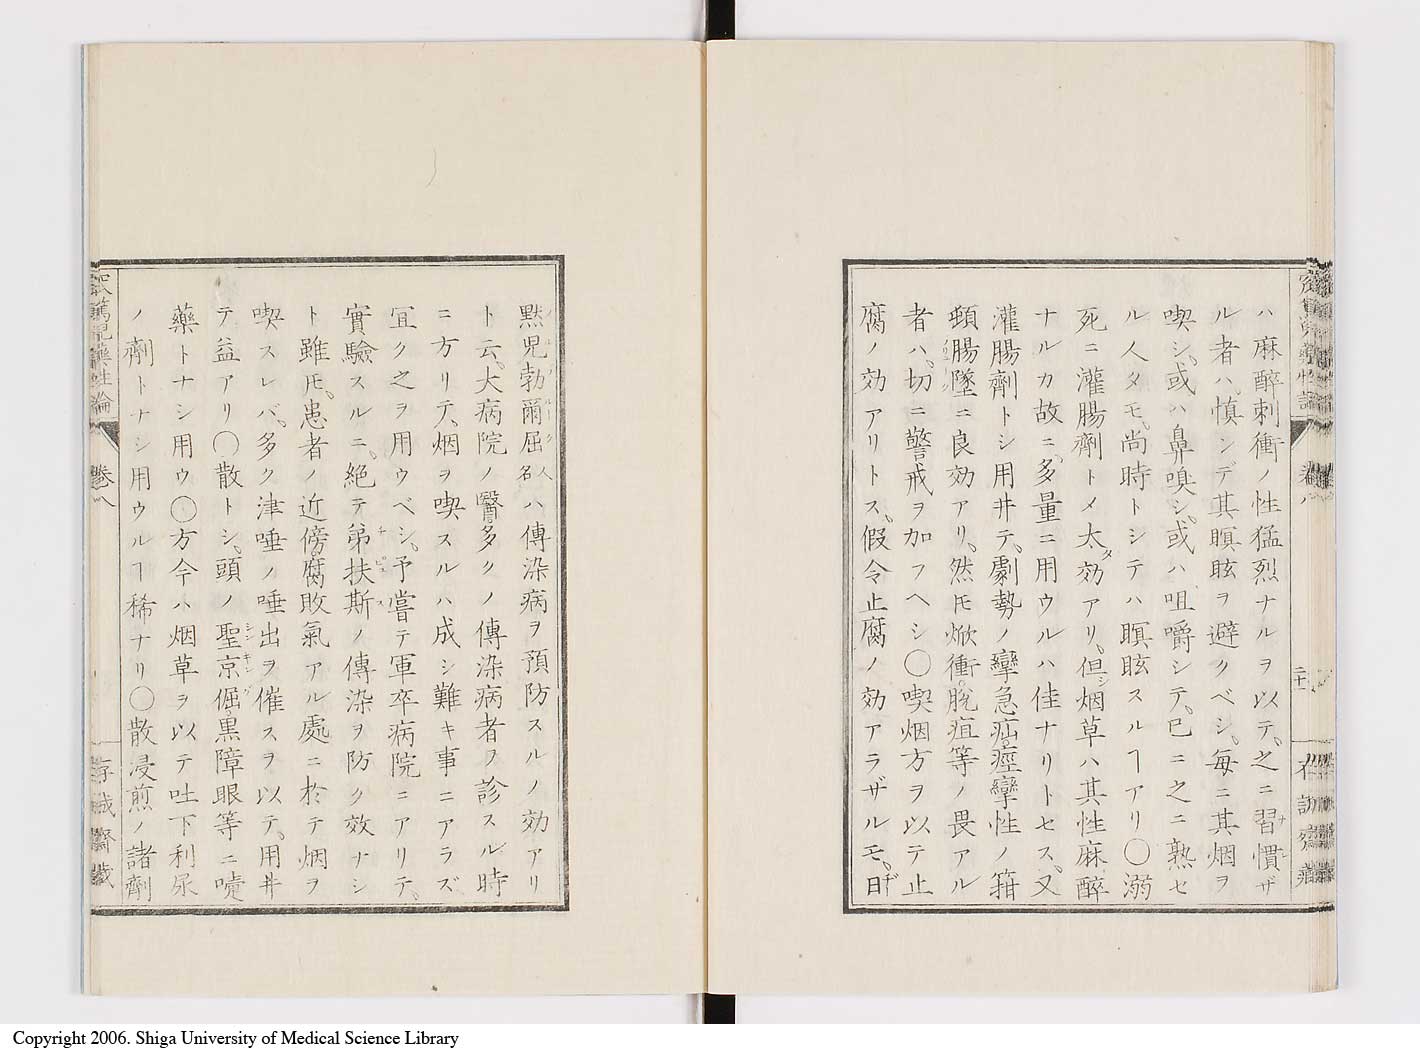 ハ麻醉刺衝ノ性猛烈ナルヲ以テ、之ニ習慣ザ
ル者ハ、慎ンデ其瞑眩ヲ避クベシ、毎ニ其烟ヲ
喫シ、或ハ鼻嗅シ、或ハ咀嚼シテ、已ニ之ニ熟セ
ル人タモ、尚時トシテハ瞑眩スルヿアリ〇溺
死ニ灌腸劑トメ太効アリ、但烟草ハ其性麻醉
ナルカ故ニ、多量ニ用ウルハ佳ナリトセス、又
灌腸劑トシ用井テ、劇勢ノ攣急疝、痙攣性ノ箝
頓腸墜ニ良効アリ、然𪜈焮衝、脱疽等ノ畏アル
者ハ、切ニ警戒ヲ加フヘシ〇喫烟方ヲ以テ止
腐ノ効アリトス、假令止腐ノ効アラザルモ、日
卷八
二十二
黙児勃爾屈人名ハ傳染病ヲ預防スルノ効アリ
ト云、大病院ノ醫多クノ傳染病者ヲ診スル時
ニ方リテ、烟ヲ喫スルハ成シ難キ事ニアラズ
宜ク之ヲ用ウベシ、予嘗テ軍卒病院ニアリテ、
實驗スルニ、絶テ弟扶斯ノ傳染ヲ防ク效ナシ
ト雖𪜈、患者ノ近傍、腐敗氣アル處ニ於テ烟ヲ
喫スレバ、多ク津唾ノ唾出ヲ催スヲ以テ、用井
テ益アリ〇散トシ、頭ノ聖京倔、黒障眼等ニ嚏
藥トナシ用ウ〇方今ハ烟草ヲ以テ吐下利尿
ノ劑トナシ用ウルヿ稀ナリ〇散浸煎ノ諸劑
篤児藥性論
卷八
Copyright 2006. Shiga University of Medical Science Library